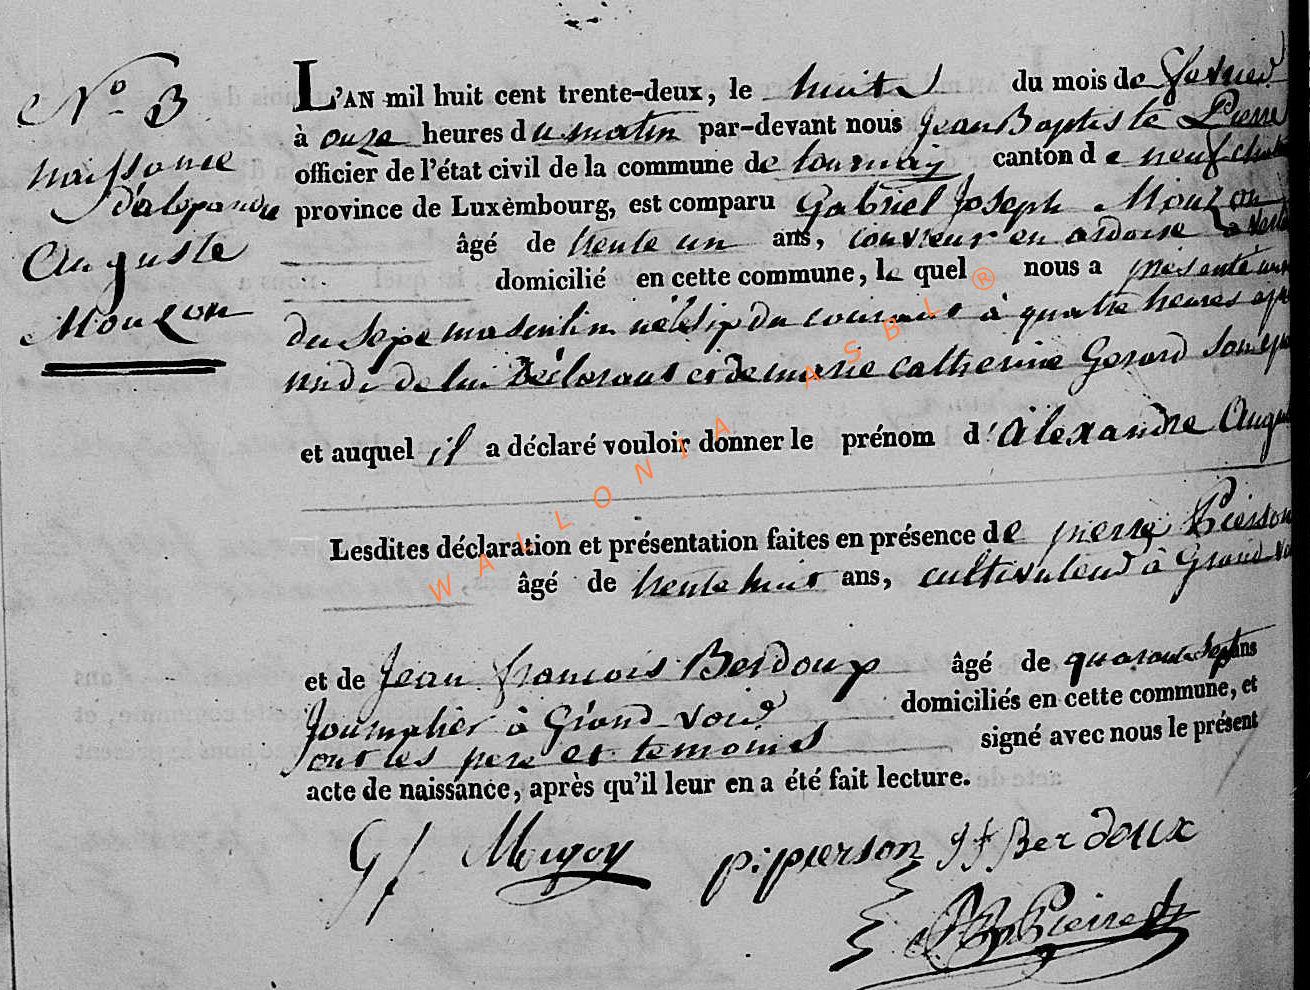 N° 3
naissance
d'alexandre
Auguste
Mouzon
L'AN mil huit cent trente-deux, le huit du mois de fevrier
à onze heures du matin par-devant nous Jean Baptiste Pierre
officier de l'état civil de la commune de tournay canton de neufchat
province de Luxembourg, est comparu Gabriel Joseph Mouzon
âgé de trente un ans, couvreur en ardoise à
domicilié en cette commune, le quel nous a présenté un
du sexe masculin né le six du courant à quatre heures
midi de lui déclarant et de marie catherine Gerard son
et auquel il a déclaré vouloir donner le prénom d'Alexandre Augu
Lesdites déclaration et présentation faites en présence de pierre Pierson
âgé de trente huit ans, cultivateur à Grand
et de Jean françois Berdoux âgé de quarante sept ans
Journalier à Grand voir domiciliés en cette commune, et
ont les pere et temoins signé avec nous le présent
acte de naissance, après qu'il leur en a été fait lecture.
G J p: pierson J f Berdoux
J B Pierre
WALLONIA ASBL ®